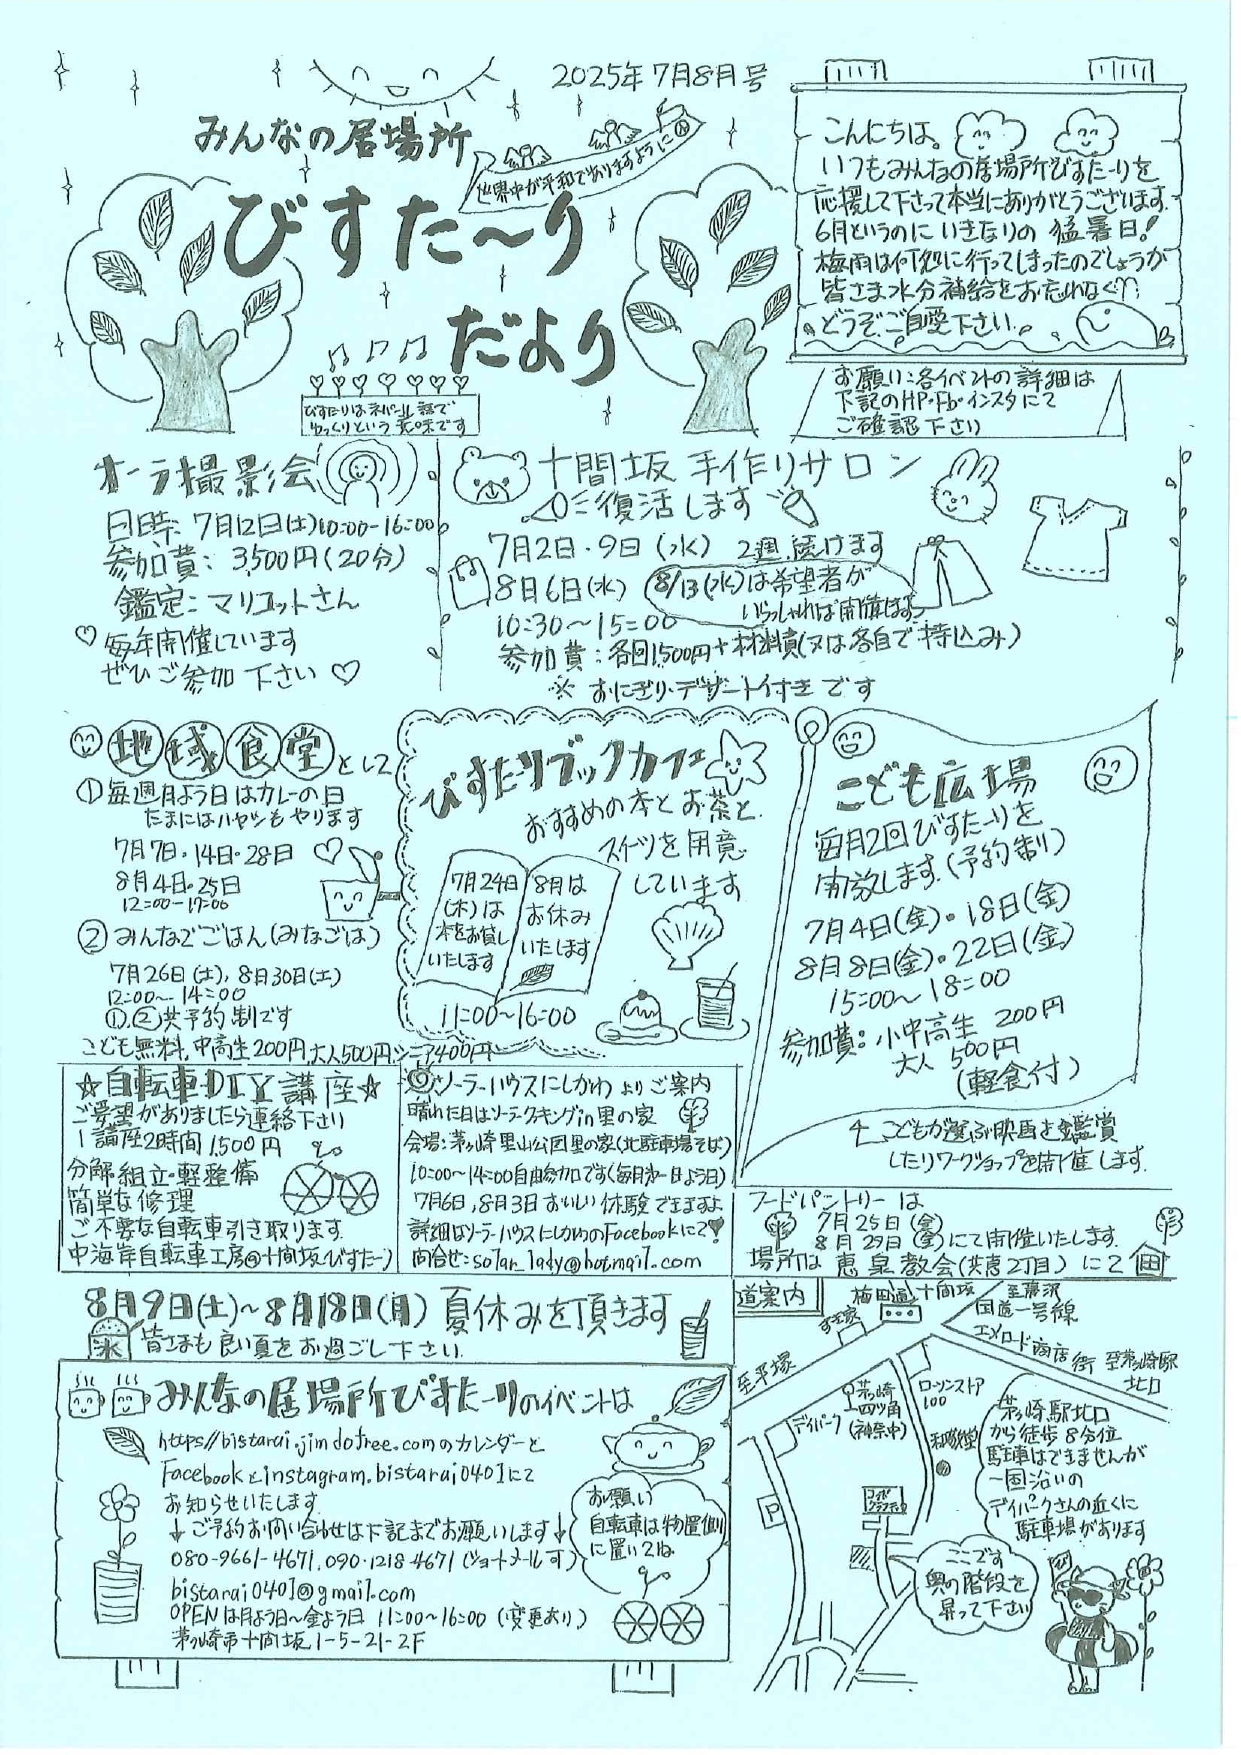 2025年7月8月号
みんなの居場所
世界中が平和でありますように
びすた〜り
だより
びすたりはネパール語で
ゆっくりという意味です
こんにちは。
いつもみんなの居場所びすた〜りを
応援して下さって本当にありがとうございます。
6月というのにいきなりの猛暑日!
梅雨は何処に行ってしまったのでしょうか
皆さま水分補給をお忘れなく
どうぞご自愛下さい。
お願い:各イベントの詳細は
下記のHP・Fb・インスタにて
ご確認下さい
オーラ撮影会
日時:7月12日(土)10:00-16:00
参加費:3,500円(20分)
鑑定:マリコットさん
♡毎年開催しています
ぜひご参加下さい♡
十間坂 手作りサロン
復活します
7月2日・9日(水) 2週続けます
8月6日(水) 8/13(水)は希望者が
いらっしゃれば開催します
10:30〜15:00
参加費:各回1,500円+材料費(又は各自で持込み)
※おにぎり・デザート付きです
地域食堂として
①毎週月よう日はカレーの日
たまにはハヤシもやります
7月7日・14日・28日
8月4日・25日
12:00-17:00
②みんなでごはん(みなごは)
7月26日(土), 8月30日(土)
12:00〜14:00
①、②共予約制です
こども無料、中高生200円、大人500円シニア400円
びすたりブックカフェ
おすすめの本とお茶と
スイーツを用意
しています
7月24日
(木)は
本をお貸し
いたします
8月は
お休み
いたします
11:00〜16:00
こども広場
毎月2回びすた〜りを
開放します。(予約制)
7月4日(金)・18日(金)
8月8日(金)・22日(金)
15:00〜18:00
参加費:小中高生 200円
大人 500円
(軽食付)
こどもが選ぶ映画を鑑賞
したりワークショップを開催します。
☆自転車DIY講座☆
ご要望がありましたら連絡下さい
1講座2時間1,500円
分解・組立・軽整備
簡単な修理
ご不要な自転車引き取ります
中海岸自転車工房@十間坂(びすた〜)
ソーラーハウスにしかわよりご案内
晴れた日はソーラークッキングin里の家
会場:茅ヶ崎里山公園里の家(北駐車場そば)
10:00〜14:00自由参加です(毎月第一日よう日)
7月6日,8月3日おいしい体験できますよ
詳細はソーラーハウスにしかわのFacebookにて
問合せ:solar_lady@hotmail.com
フードパントリーは
7月25日(金)
8月29日(金)にて開催いたします
場所は恵泉教会(共恵2丁目)にて
8月9日(土)〜8月18日(月)夏休みを頂きます
氷
皆さまも良い夏をお過ごし下さい
みんなの居場所びすた〜りのイベントは
https://bistarai.jimdofree.comのカレンダーと
Facebookとinstagram.bistarai0401にて
お知らせいたします
↓ご予約お問い合わせは下記までお願いします↓
080-9661-4671,090-1218-4671(ショートメール可)
bistarai0401@gmail.com
OPENは月よう日〜金よう日 11:00〜16:00(変更あり)
茅ヶ崎市十間坂1-5-21-2F
お願い
自転車は物置側
に置いてね
道案内
梅田通
十間坂
すき家
至藤沢
国道一号線
エメロード商店街
至茅ヶ崎駅
北口
至平塚
デイパーク
茅ヶ崎
四ツ角
(神奈中)
ローソンストア
100
P
茅ヶ崎駅北口
から徒歩8分位
駐車はできませんが
一国沿いの
デイパークさんの近くに
駐車場があります
ここです
奥の階段を
昇って下さい